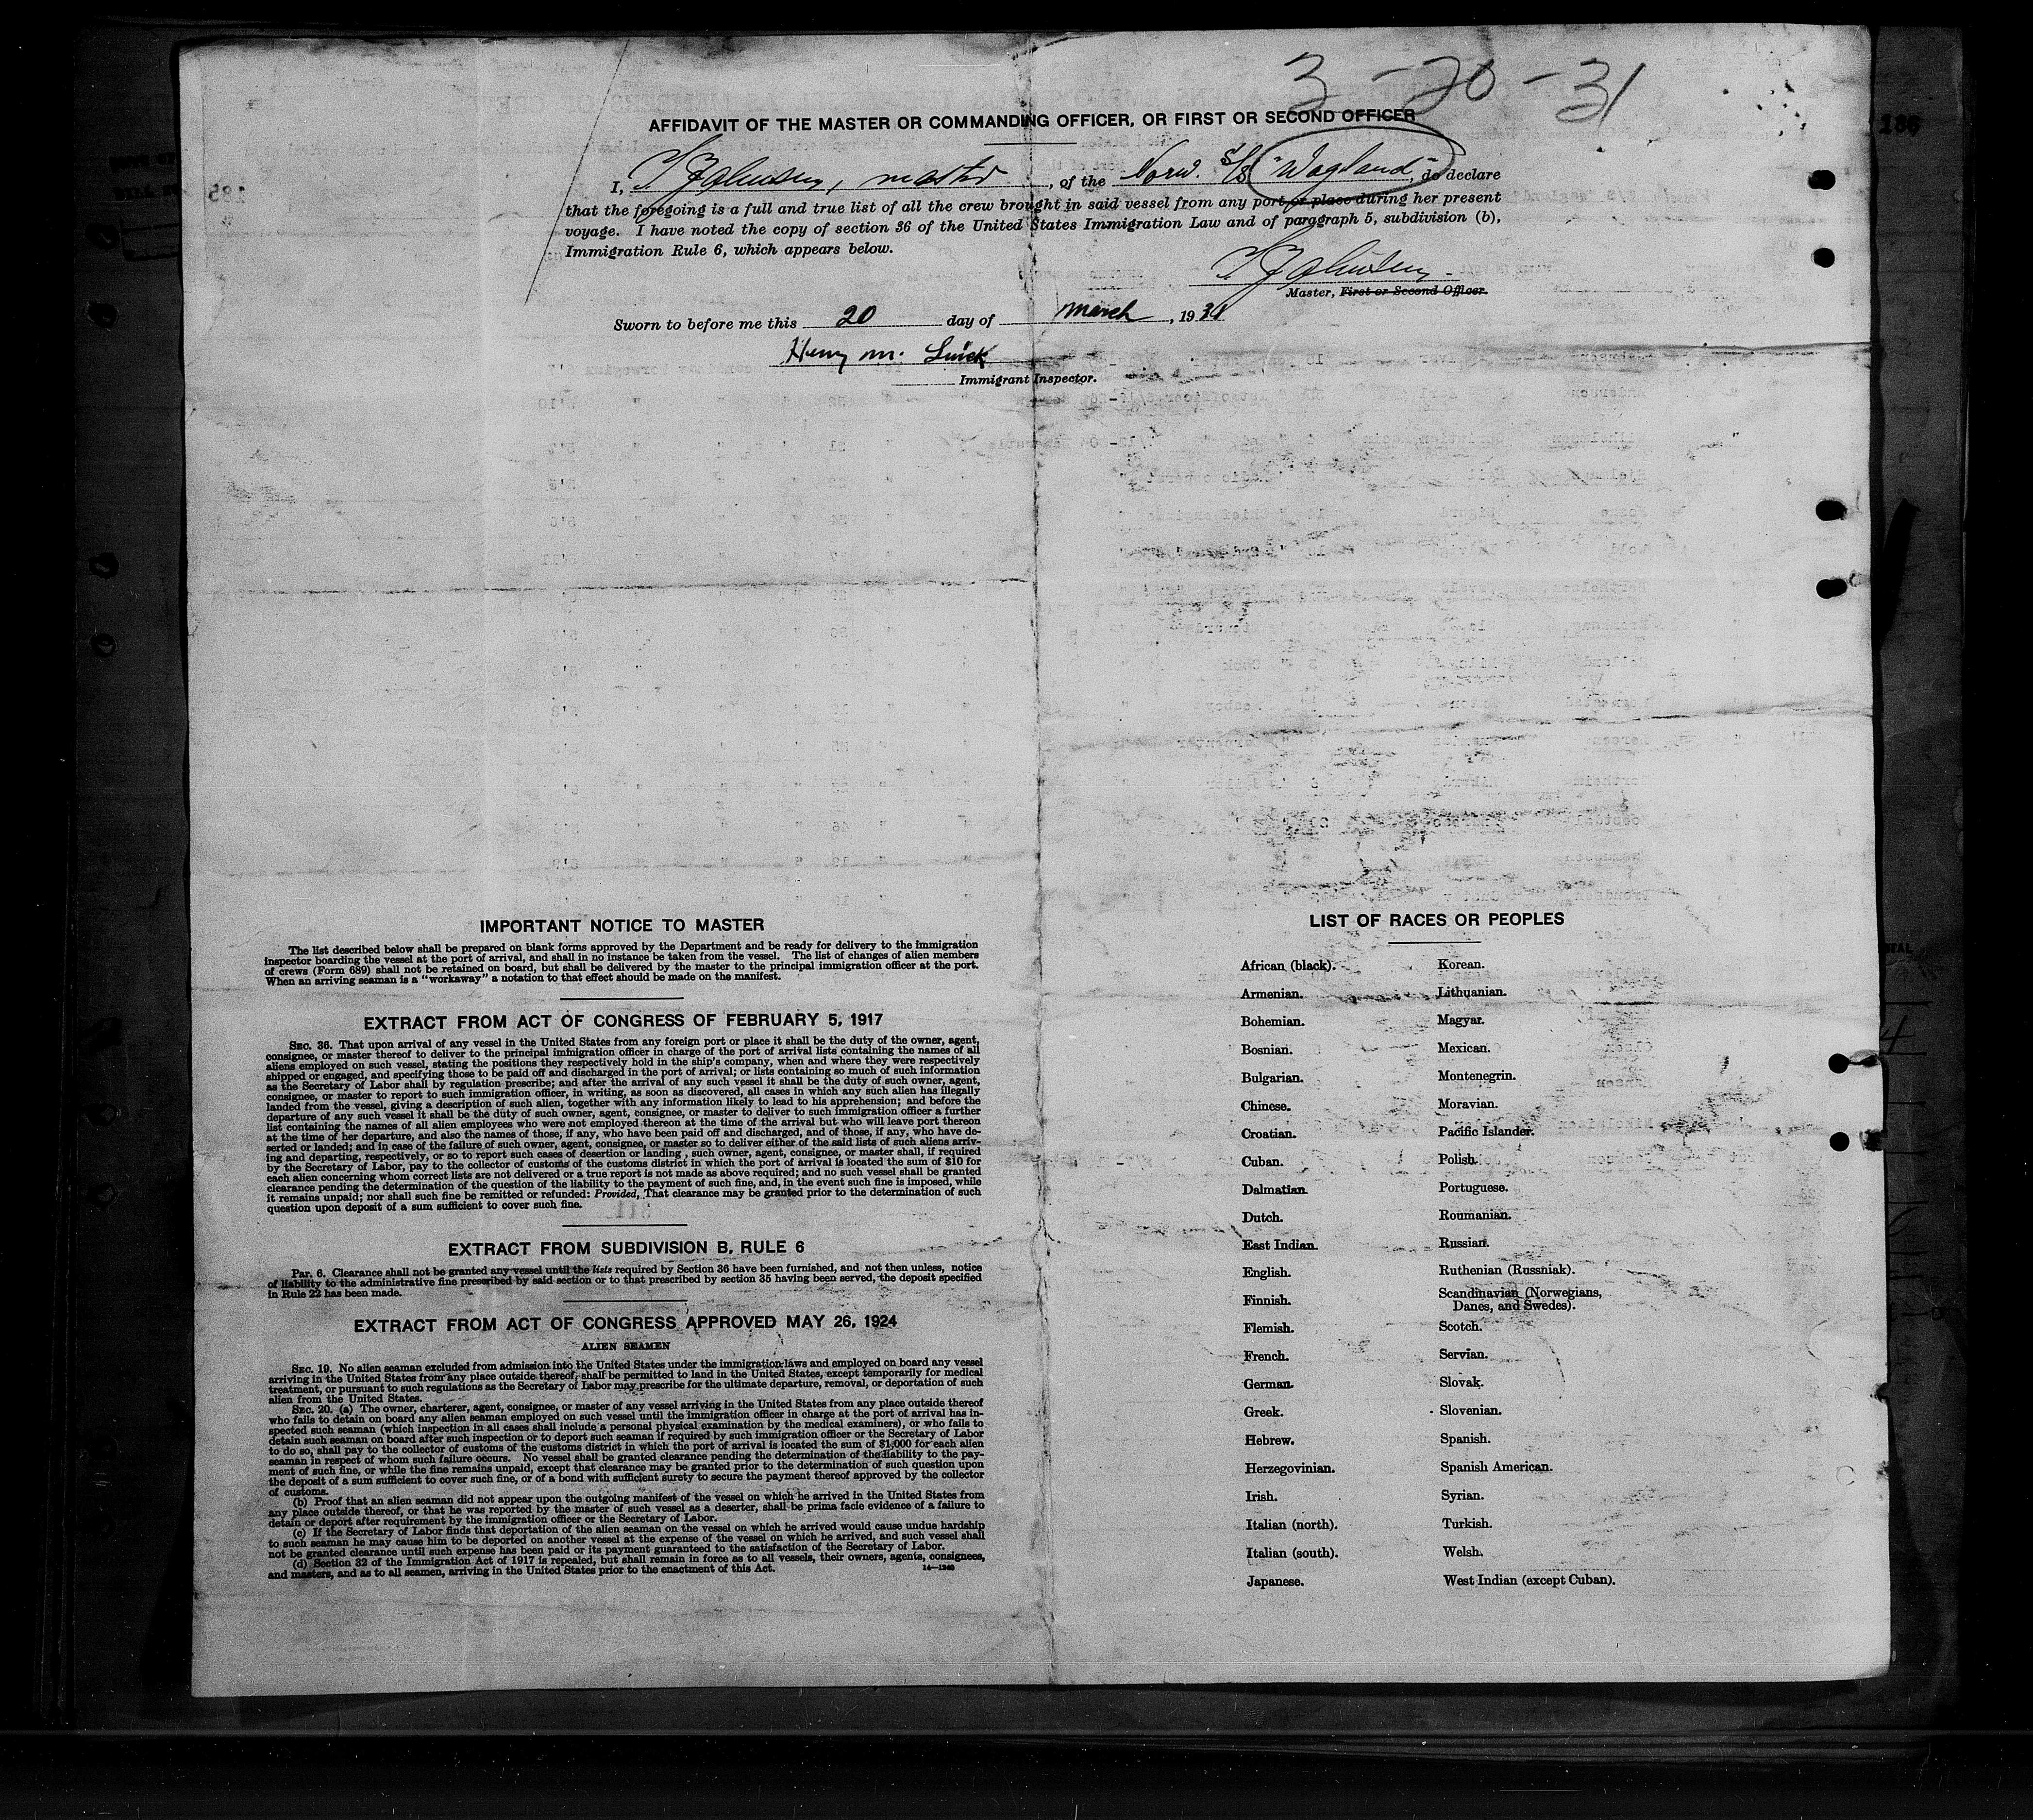 3-20-31
AFFIDAVIT OF THE MASTER OR COMMANDING OFFICER, OR FIRST OR SECOND OFFICER
186
I, master, of the Norw. S/S "Vogland", do declare
that the foregoing is a full and true list of all the crew brought in said vessel from any port or place during her present
voyage. I have noted the copy of section 36 of the United States Immigration Law and of paragraph 5, subdivision (b),
Immigration Rule 6, which appears below.
Master, First or Second Officer.
Sworn to before me this 20 day of March, 1931
Henry M.
Immigrant Inspector.
IMPORTANT NOTICE TO MASTER
The list described below shall be prepared on blank forms approved by the Department and be ready for delivery to the immigration
inspector boarding the vessel at the port of arrival, and shall in no instance be taken from the vessel. The list of changes of alien members
of crews (Form 689) shall not be retained on board, but shall be delivered by the master to the principal immigration officer at the port.
When an arriving seaman is a "workaway" a notation to that effect should be made on the manifest.
EXTRACT FROM ACT OF CONGRESS OF FEBRUARY 5, 1917
SEC. 36. That upon arrival of any vessel in the United States from any foreign port or place it shall be the duty of the owner, agent,
consignee, or master thereof to deliver to the principal immigration officer in charge of the port of arrival lists containing the names of all
aliens employed on such vessel, stating the positions they respectively hold in the ship's company, when and where they were respectively
shipped or engaged, and specifying those to be paid off and discharged in the port of arrival; or lists containing so much of such information
as the Secretary of Labor shall by regulation prescribe; and after the arrival of any such vessel it shall be the duty of such owner, agent,
consignee, or master to report to such immigration officer, in writing, as soon as discovered, all cases in which any such alien has illegally
landed from the vessel, giving a description of such alien, together with any information likely to lead to his apprehension; and before the
departure of any such vessel it shall be the duty of such owner, agent, consignee, or master to deliver to such immigration officer a further
list containing the names of all alien employees who were not employed thereon at the time of the arrival but who will leave port thereon
at the time of her departure, and also the names of those, if any, who have been paid off and discharged, and of those, if any, who have de-
serted or landed; and in case of the failure of such owner, agent, consignee, or master so to deliver either of the said lists of such aliens arriv-
ing and departing, respectively, or so to report such cases of desertion or landing, such owner, agent, consignee, or master shall, if required
by the Secretary of Labor, pay to the collector of customs of the customs district in which the port of arrival is located the sum of $10 for
each alien concerning whom correct lists are not delivered or a true report is not made as above required; and no such vessel shall be granted
clearance pending the determination of the question of the liability to the payment of such fine, and, in the event such fine is imposed, while
it remains unpaid; nor shall such fine be remitted or refunded: Provided, That clearance may be granted prior to the determination of such
question upon deposit of a sum sufficient to cover such fine.
EXTRACT FROM SUBDIVISION B, RULE 6
PAR. 6. Clearance shall not be granted any vessel until the lists required by Section 36 have been furnished, and not then unless, notice
of liability to the administrative fine prescribed by said section or to that prescribed by section 35 having been served, the deposit specified
in Rule 22 has been made.
EXTRACT FROM ACT OF CONGRESS APPROVED MAY 26, 1924
ALIEN SEAMEN
SEC. 19. No alien seaman excluded from admission into the United States under the immigration laws and employed on board any vessel
arriving in the United States from any place outside thereof, shall be permitted to land in the United States, except temporarily for medical
treatment, or pursuant to such regulations as the Secretary of Labor may prescribe for the ultimate departure, removal, or deportation of such
alien from the United States.
SEC. 20. (a) The owner, charterer, agent, consignee, or master of any vessel arriving in the United States from any place outside thereof
who fails to detain on board any alien seaman employed on such vessel until the immigration officer in charge at the port of arrival has in-
spected such seaman (which inspection in all cases shall include a personal physical examination by the medical examiners), or who fails to
detain such seaman on board after such inspection or to deport such seaman if required by such immigration officer or the Secretary of Labor
to do so, shall pay to the collector of customs of the customs district in which the port of arrival is located the sum of $1,000 for each alien
seaman in respect of whom such failure occurs. No vessel shall be granted clearance pending the determination of the liability to the pay-
ment of such fine, or while the fine remains unpaid, except that clearance may be granted prior to the determination of such question upon
the deposit of a sum sufficient to cover such fine, or of a bond with sufficient surety to secure the payment thereof approved by the collector
of customs.
(b) Proof that an alien seaman did not appear upon the outgoing manifest of the vessel on which he arrived in the United States from
any place outside thereof, or that he was reported by the master of such vessel as a deserter, shall be prima facie evidence of a failure to
detain or deport after requirement by the immigration officer or the Secretary of Labor.
(c) If the Secretary of Labor finds that deportation of the alien seaman on the vessel on which he arrived would cause undue hardship
to such seaman he may cause him to be deported on another vessel at the expense of the vessel on which he arrived, and such vessel shall
not be granted clearance until such expense has been paid or its payment guaranteed to the satisfaction of the Secretary of Labor.
(d) Section 32 of the Immigration Act of 1917 is repealed, but shall remain in force as to all vessels, their owners, agents, consignees,
and masters, and as to all seamen, arriving in the United States prior to the enactment of this Act.
14—1240
LIST OF RACES OR PEOPLES
African (black). Korean.
Armenian. Lithuanian.
Bohemian. Magyar.
Bosnian. Mexican.
Bulgarian. Montenegrin.
Chinese. Moravian.
Croatian. Pacific Islander.
Cuban. Polish.
Dalmatian. Portuguese.
Dutch. Roumanian.
East Indian. Russian.
English. Ruthenian (Russniak).
Finnish. Scandinavian (Norwegians,
Danes, and Swedes).
Flemish. Scotch.
French. Servian.
German. Slovak.
Greek. Slovenian.
Hebrew. Spanish.
Herzegovinian. Spanish American.
Irish. Syrian.
Italian (north). Turkish.
Italian (south). Welsh.
Japanese. West Indian (except Cuban).